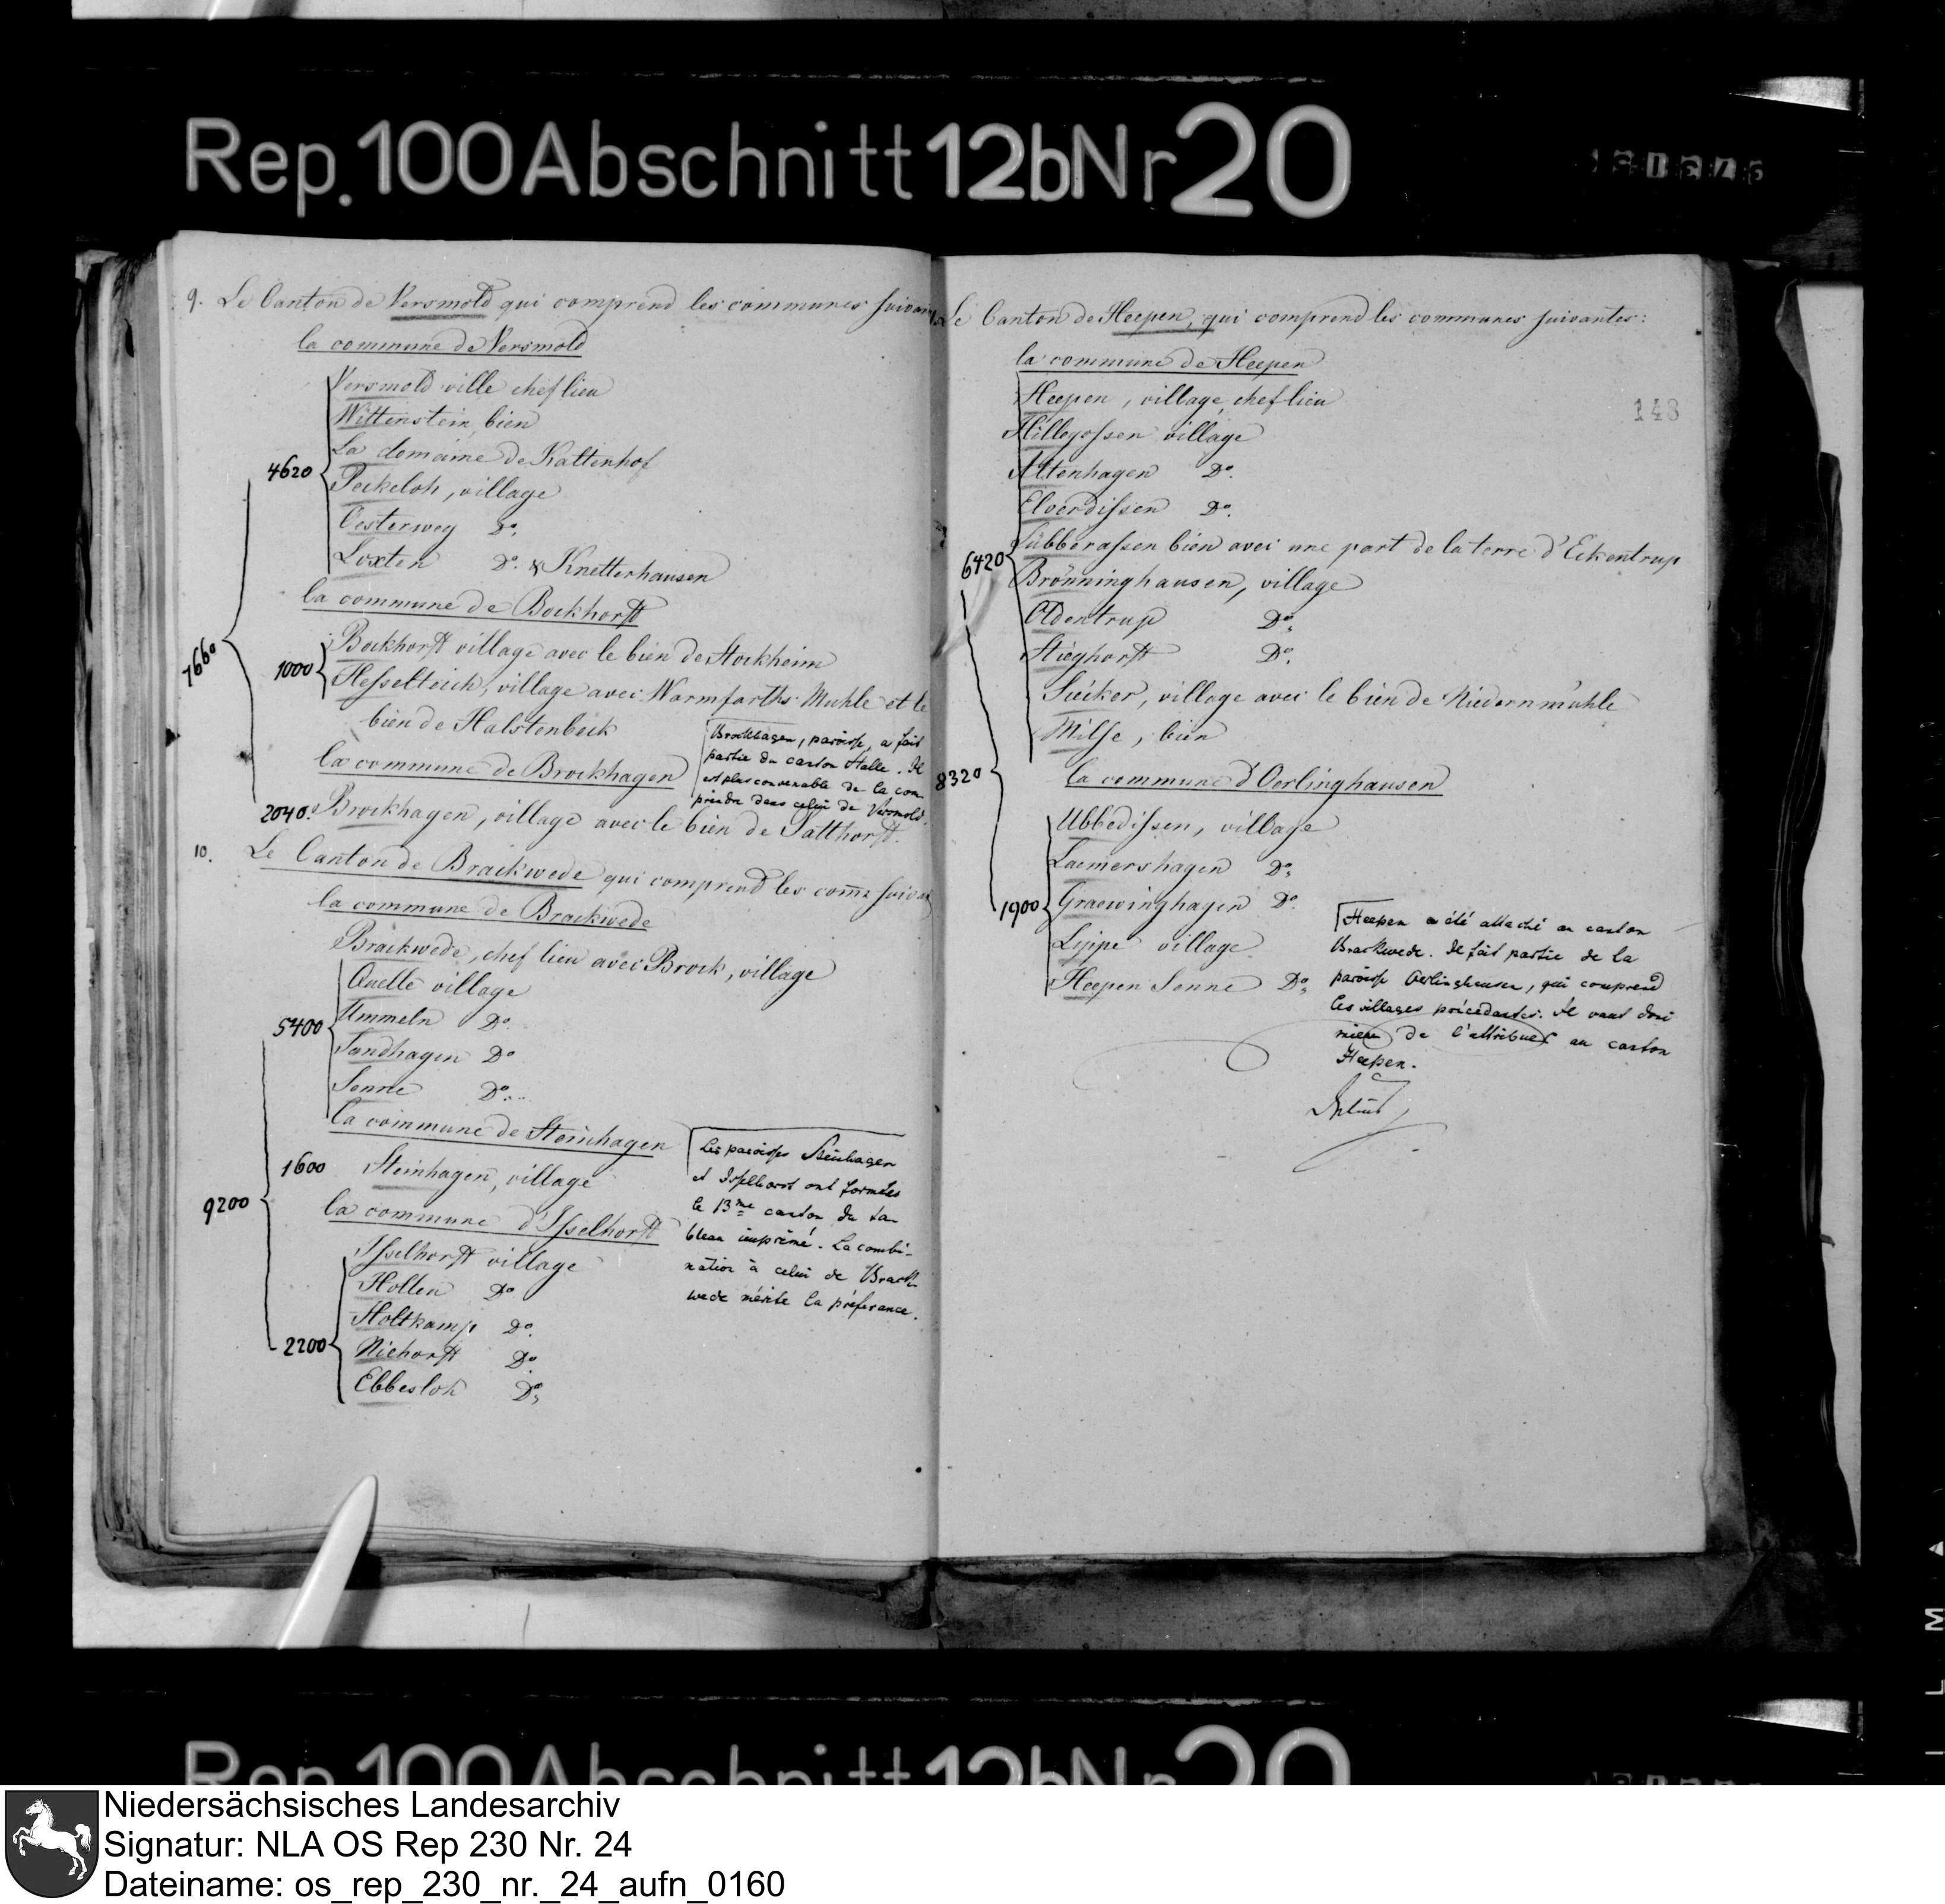 Rep.100Abschnitt12bNr20
9. Le Canton de Versmold qui comprend les communes suivan
la commune de Versmold
Versmold ville chef lieu
Wittenstein, bien
La domaine de Kattenhof
4620 Peckeloh, village
Oesterweg Do.
Loxten Do. & Knetterhausen
la commune de Bockhorst
7660
Bockhorst village avec le bien de Stockheim
1000
Hesselteich, village avec Warmfarths Muhle et le
bien de Halstenbeck
Brockhagen, paroisse, a fait
partie du canton Halle. Il
est plus convenable de la com-
prendre dans celui de Versmold.
la commune de Brockhagen
2040. Brockhagen, village avec le bien de Patthorst.
10. Le Canton de Brackwede qui comprend les come suivan
la commune de Brackwede
Brackwede, chef lieu avec Brock, village
Quelle village
5400 Ummeln Do.
Sandhagen Do
Senne Do.
la commune de Steinhagen
1600 Steinhagen, village
9200
la commune d'Isselhorst
Isselhorst village
Hollen Do
Holtkamp Do.
2200 Niehorst Do.
Ebbesloh Do
Les paroisses Steinhagen
et Isselhorst ont formées
le 13me canton du ta-
bleau imprimé. La combi-
nation à celui de Brack-
wede mérite la préferance.
Le Canton de Heepen, qui comprend les communes suivantes:
148
la commune de Heepen
Heepen, village chef lieu
Hillegossen village
Altenhagen Do.
Elverdissen Do.
Lübberassen bien avec une part de la terre d'Eckentrup
6420
Brönninghausen, village
Oldentrup Do
Stieghorst Do.
Sieker, village avec le bien de Niedernmühle
Milse, bien
8320
la commune d'Oerlinghausen
Ubbedissen, village
Laemershagen Do
1900 Graewinghagen Do.
Lippe village
Heepen Senne Do
Heepen a été attaché au canton
Brackwede. Il fait partie de la
paroisse Oerlinghausen, qui comprend
les villages précédantes. Il vaut donc
mieux de l'attribuer au canton
Heepen.
Niedersächsisches Landesarchiv
Signatur: NLA OS Rep 230 Nr. 24
Dateiname: os_rep_230_nr._24_aufn_0160